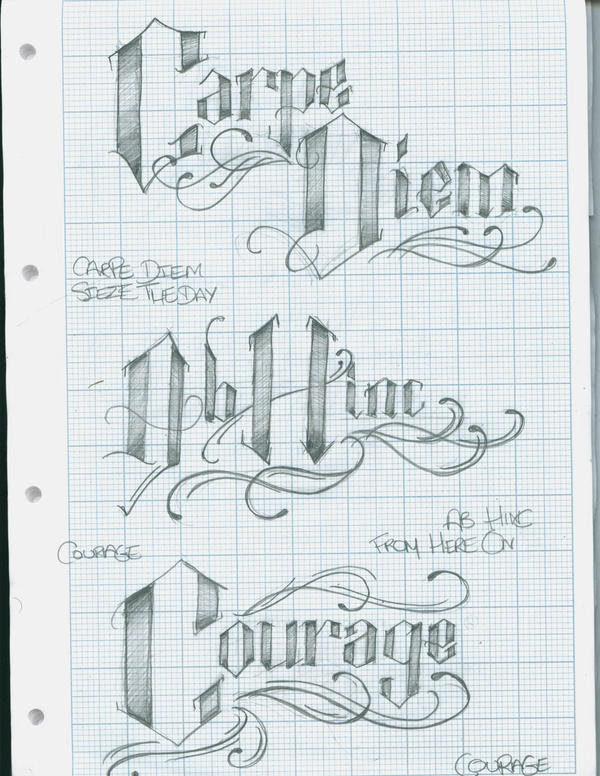 Carpe
Diem
CARPE DIEM
SIEZE THE DAY
Ab Hinc
AB HINC
FROM HERE ON
COURAGE
Courage
COURAGE